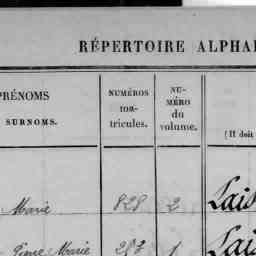 RÉPERTOIRE ALPHA
PRÉNOMS
SURNOMS.
NUMÉROS
matricules.
NU-
MÉRO
du
volume.
(Il doit
Marie 828 2 Lais
Marie 1 Lais